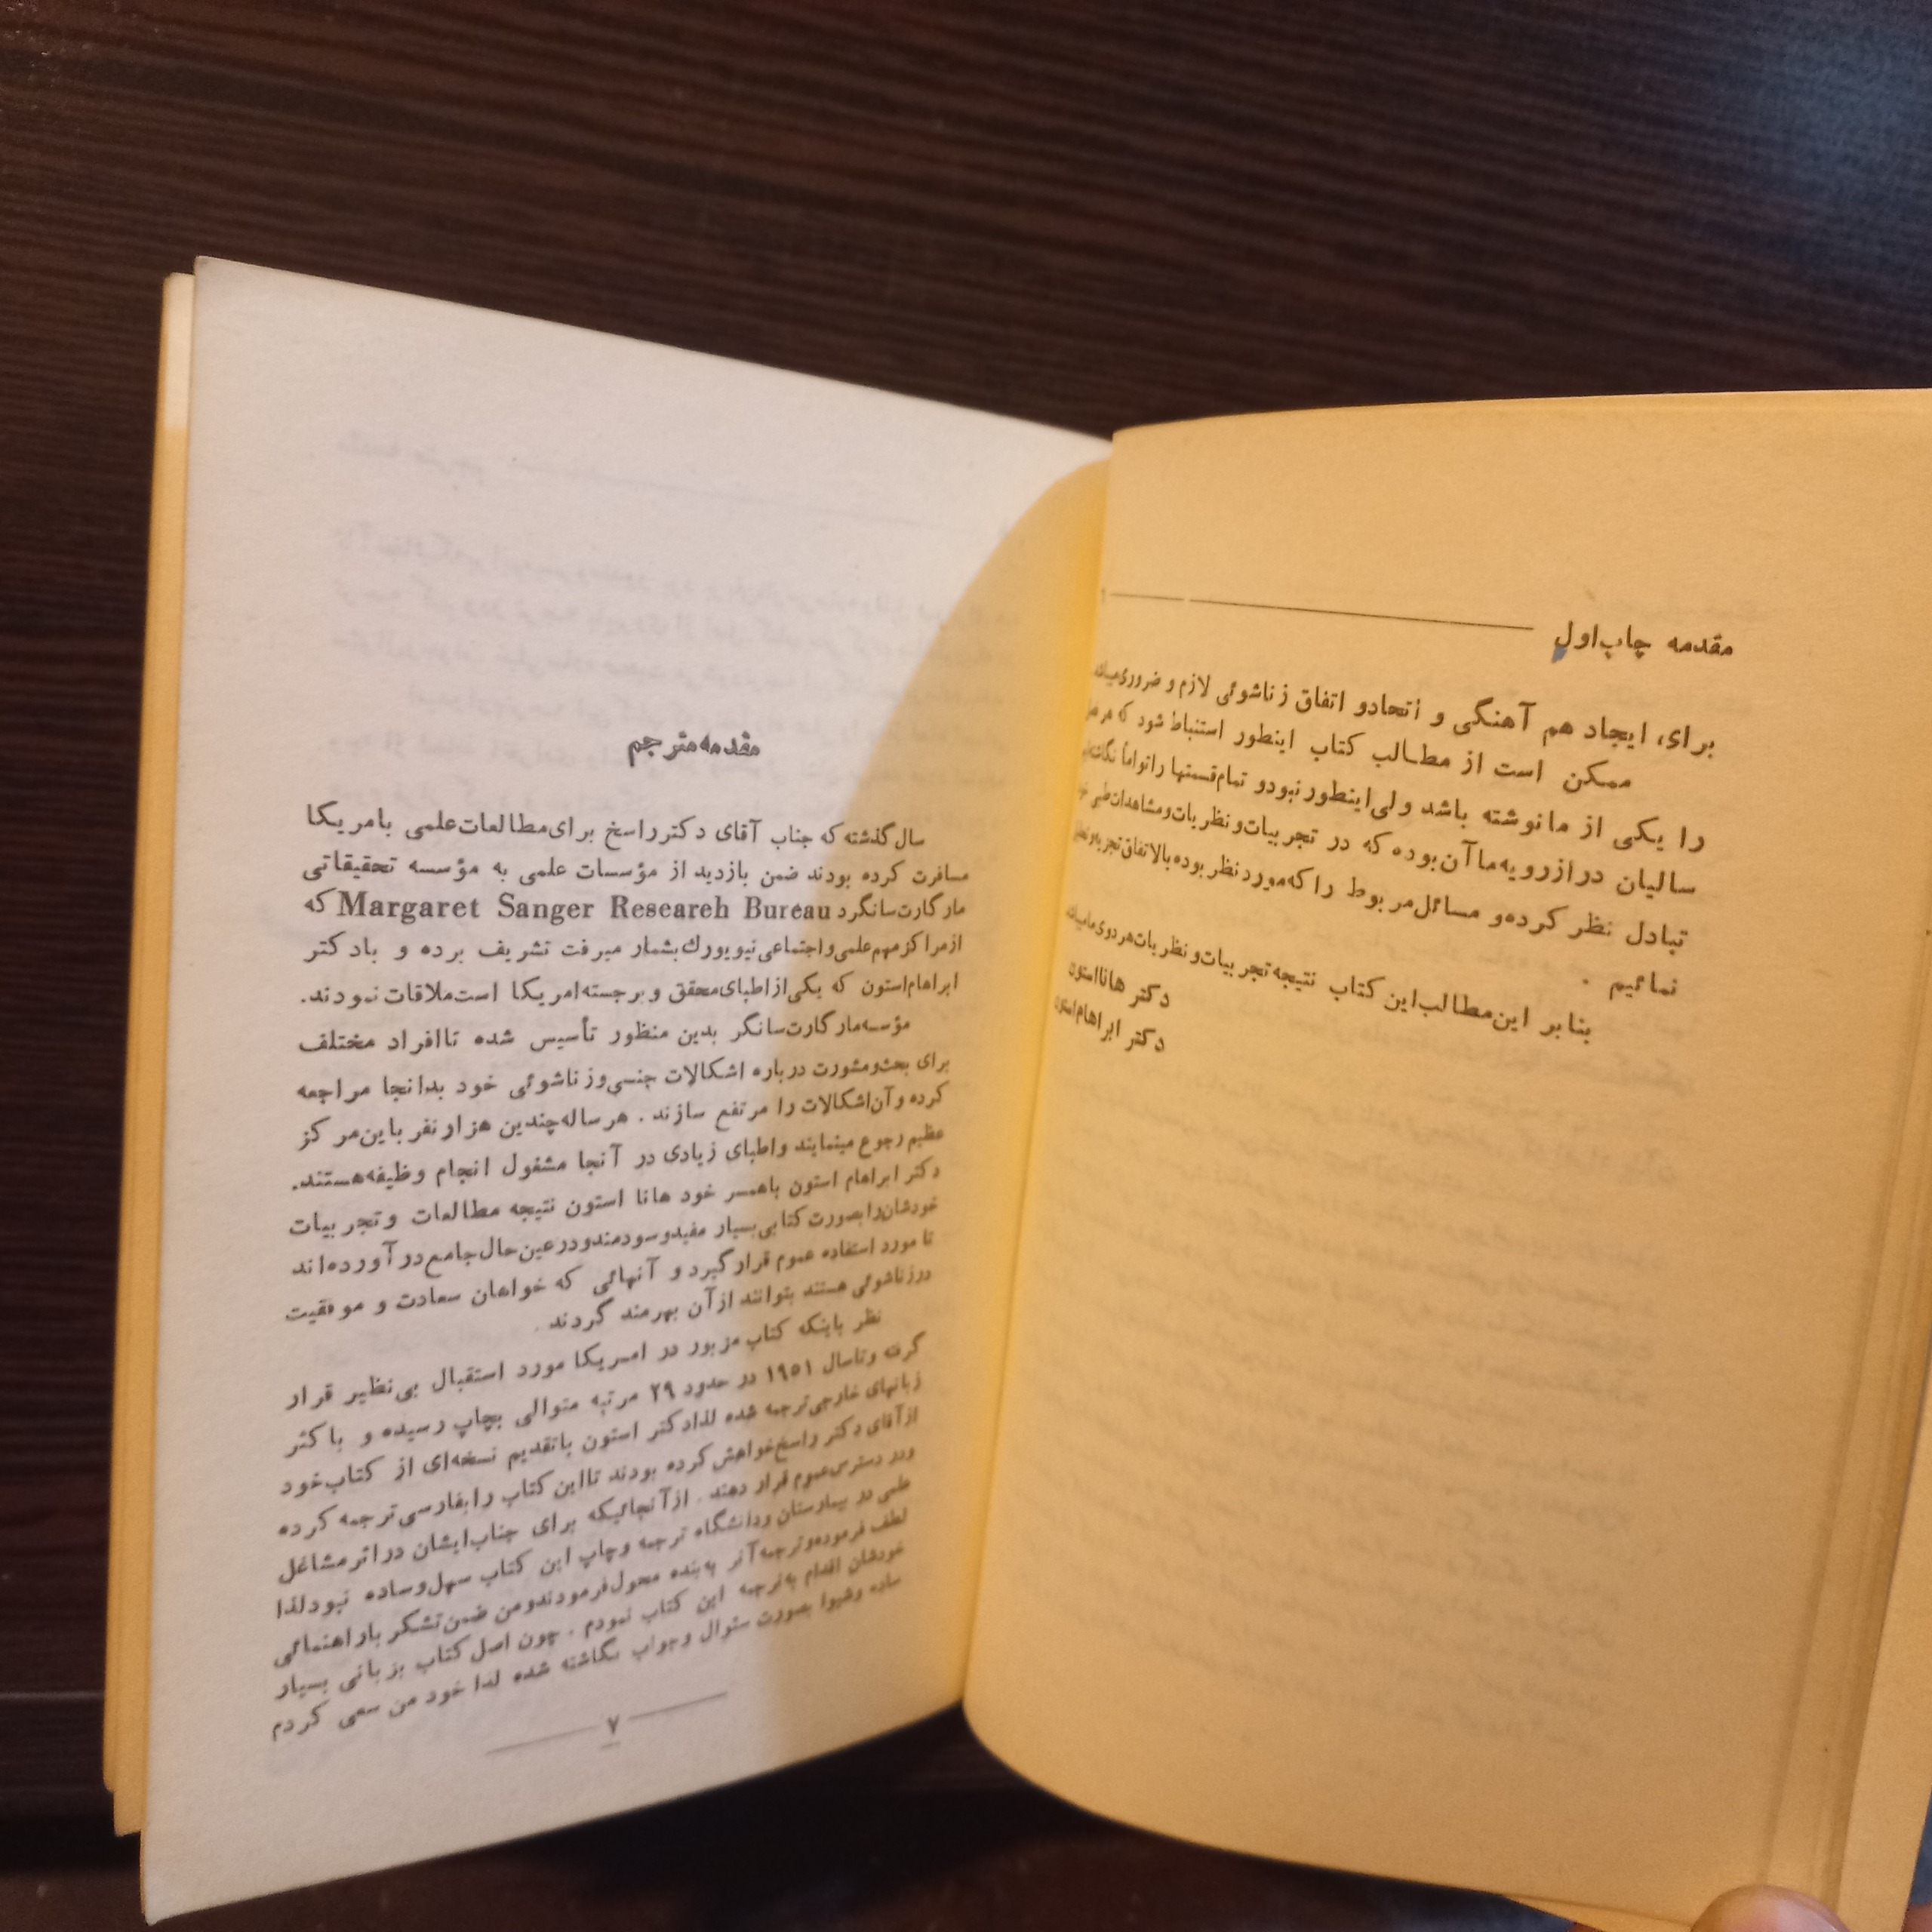 مقدمه چاپ‌اول
برای، ایجاد هم آهنگی و اتحادو اتفاق زناشوئی لازم و ضروری‌میباشد
ممکن است از مطالب کتاب اینطور استنباط شود که هر
را یکی از مانوشته باشد ولی‌اینطور نبودو تمام‌قسمتها راتواماً
سالیان درازرویه‌ماآن‌بوده که در تجربیات‌و نظریات‌ومشاهدات‌طبی
تبادل نظر کرده‌و مسائل‌مربوط راکه‌مورد‌نظر بوده‌بالاتفاق‌تجزیه‌و
نمائیم .
بنابر این‌مطالب‌این کتاب نتیجه‌تجربیات‌و نظریات‌هر‌دوی‌مامیباشد
دکتر هانااستون
دکتر ابراهام‌استون
مقدمه‌مترجم
سال گذشته که جناب آقای دکتر‌راسخ برای‌مطالعات‌علمی بامریکا
مسافرت کرده بودند ضمن بازدید از مؤسسات علمی به مؤسسه تحقیقاتی
مارگارت‌سانگرد Margaret Sanger Researeh Bureau که
ازمراکزمهم‌علمی‌و‌اجتماعی‌نیویورك‌بشمار میرفت تشریف برده و بادکتر
ابراهام‌استون که یکی‌ازاطبای‌محقق و برجسته‌امریکا است‌ملاقات‌نمودند.
مؤسسه‌مارگارت‌سانگر بدین منظور تأسیس شده تاافراد مختلف
برای بحث‌ومشورت درباره اشکالات جنسی‌وزناشوئی خود بدانجا مراجعه
کرده و‌آن‌اشکالات را مرتفع سازند . هرساله‌چندین هزارنفر باین‌مرکز
عظیم رجوع مینمایند و‌اطبای زیادی در آنجا مشغول انجام وظیفه‌هستند.
دکتر ابراهام استون باهمسر خود هانا استون نتیجه مطالعات وتجربیات
خودشان‌رابصورت کتابی‌بسیار مفیدوسودمندودرعین‌حال‌جامع‌درآورده‌اند
تا مورد استفاده عموم قرارگیرد و آنهائی که خواهان سعادت و موفقیت
درزناشوئی هستند بتوانند ازآن بهرمند گردند .
نظر باینکه کتاب مزبور در امریکا مورد استقبال بی‌نظیر قرار
گرفته وتاسال ۱۹۵۱ در حدود ۲۹ مرتبه متوالی بچاپ رسیده و باکثر
زبانهای خارجی‌ترجمه شده لذادکتر استون باتقدیم نسخه‌ای از کتاب‌خود
ازآقای دکتر راسخ‌خواهش‌کرده بودند تااین کتاب رابفارسی‌ترجمه کرده
ودر دسترس‌عموم قرار دهند . ازآنجائیکه برای جناب‌ایشان دراثرمشاغل
علمی در بیمارستان ودانشگاه ترجمه وچاپ این کتاب سهل‌وساده نبودلذا
لطف فرموده‌وترجمه‌آنر به‌بنده محول‌فرمودندومن ضمن‌تشکر باراهنمائی
خودشان اقدام به‌ترجمه این کتاب نمودم . چون اصل کتاب بزبانی بسیار
ساده وشیوا بصورت سئوال وجواب نگاشته شده لذا خود من سعی کردم
۷